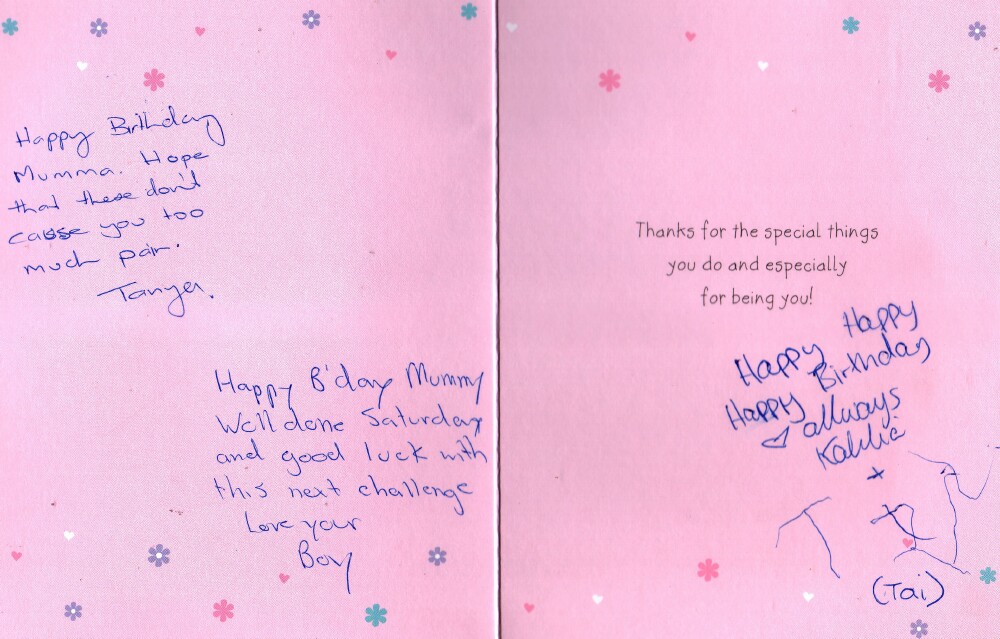 Happy Birthday
Mumma. Hope
that these don't
cause you too
much pain.
Tanya.
Happy B'day Mummy
Well done Saturday
and good luck with
this next challenge
Love your
Boy
Thanks for the special things
you do and especially
for being you!
Happy Happy
Happy Birthday
allways
Kahlie
+
T
(Tai)